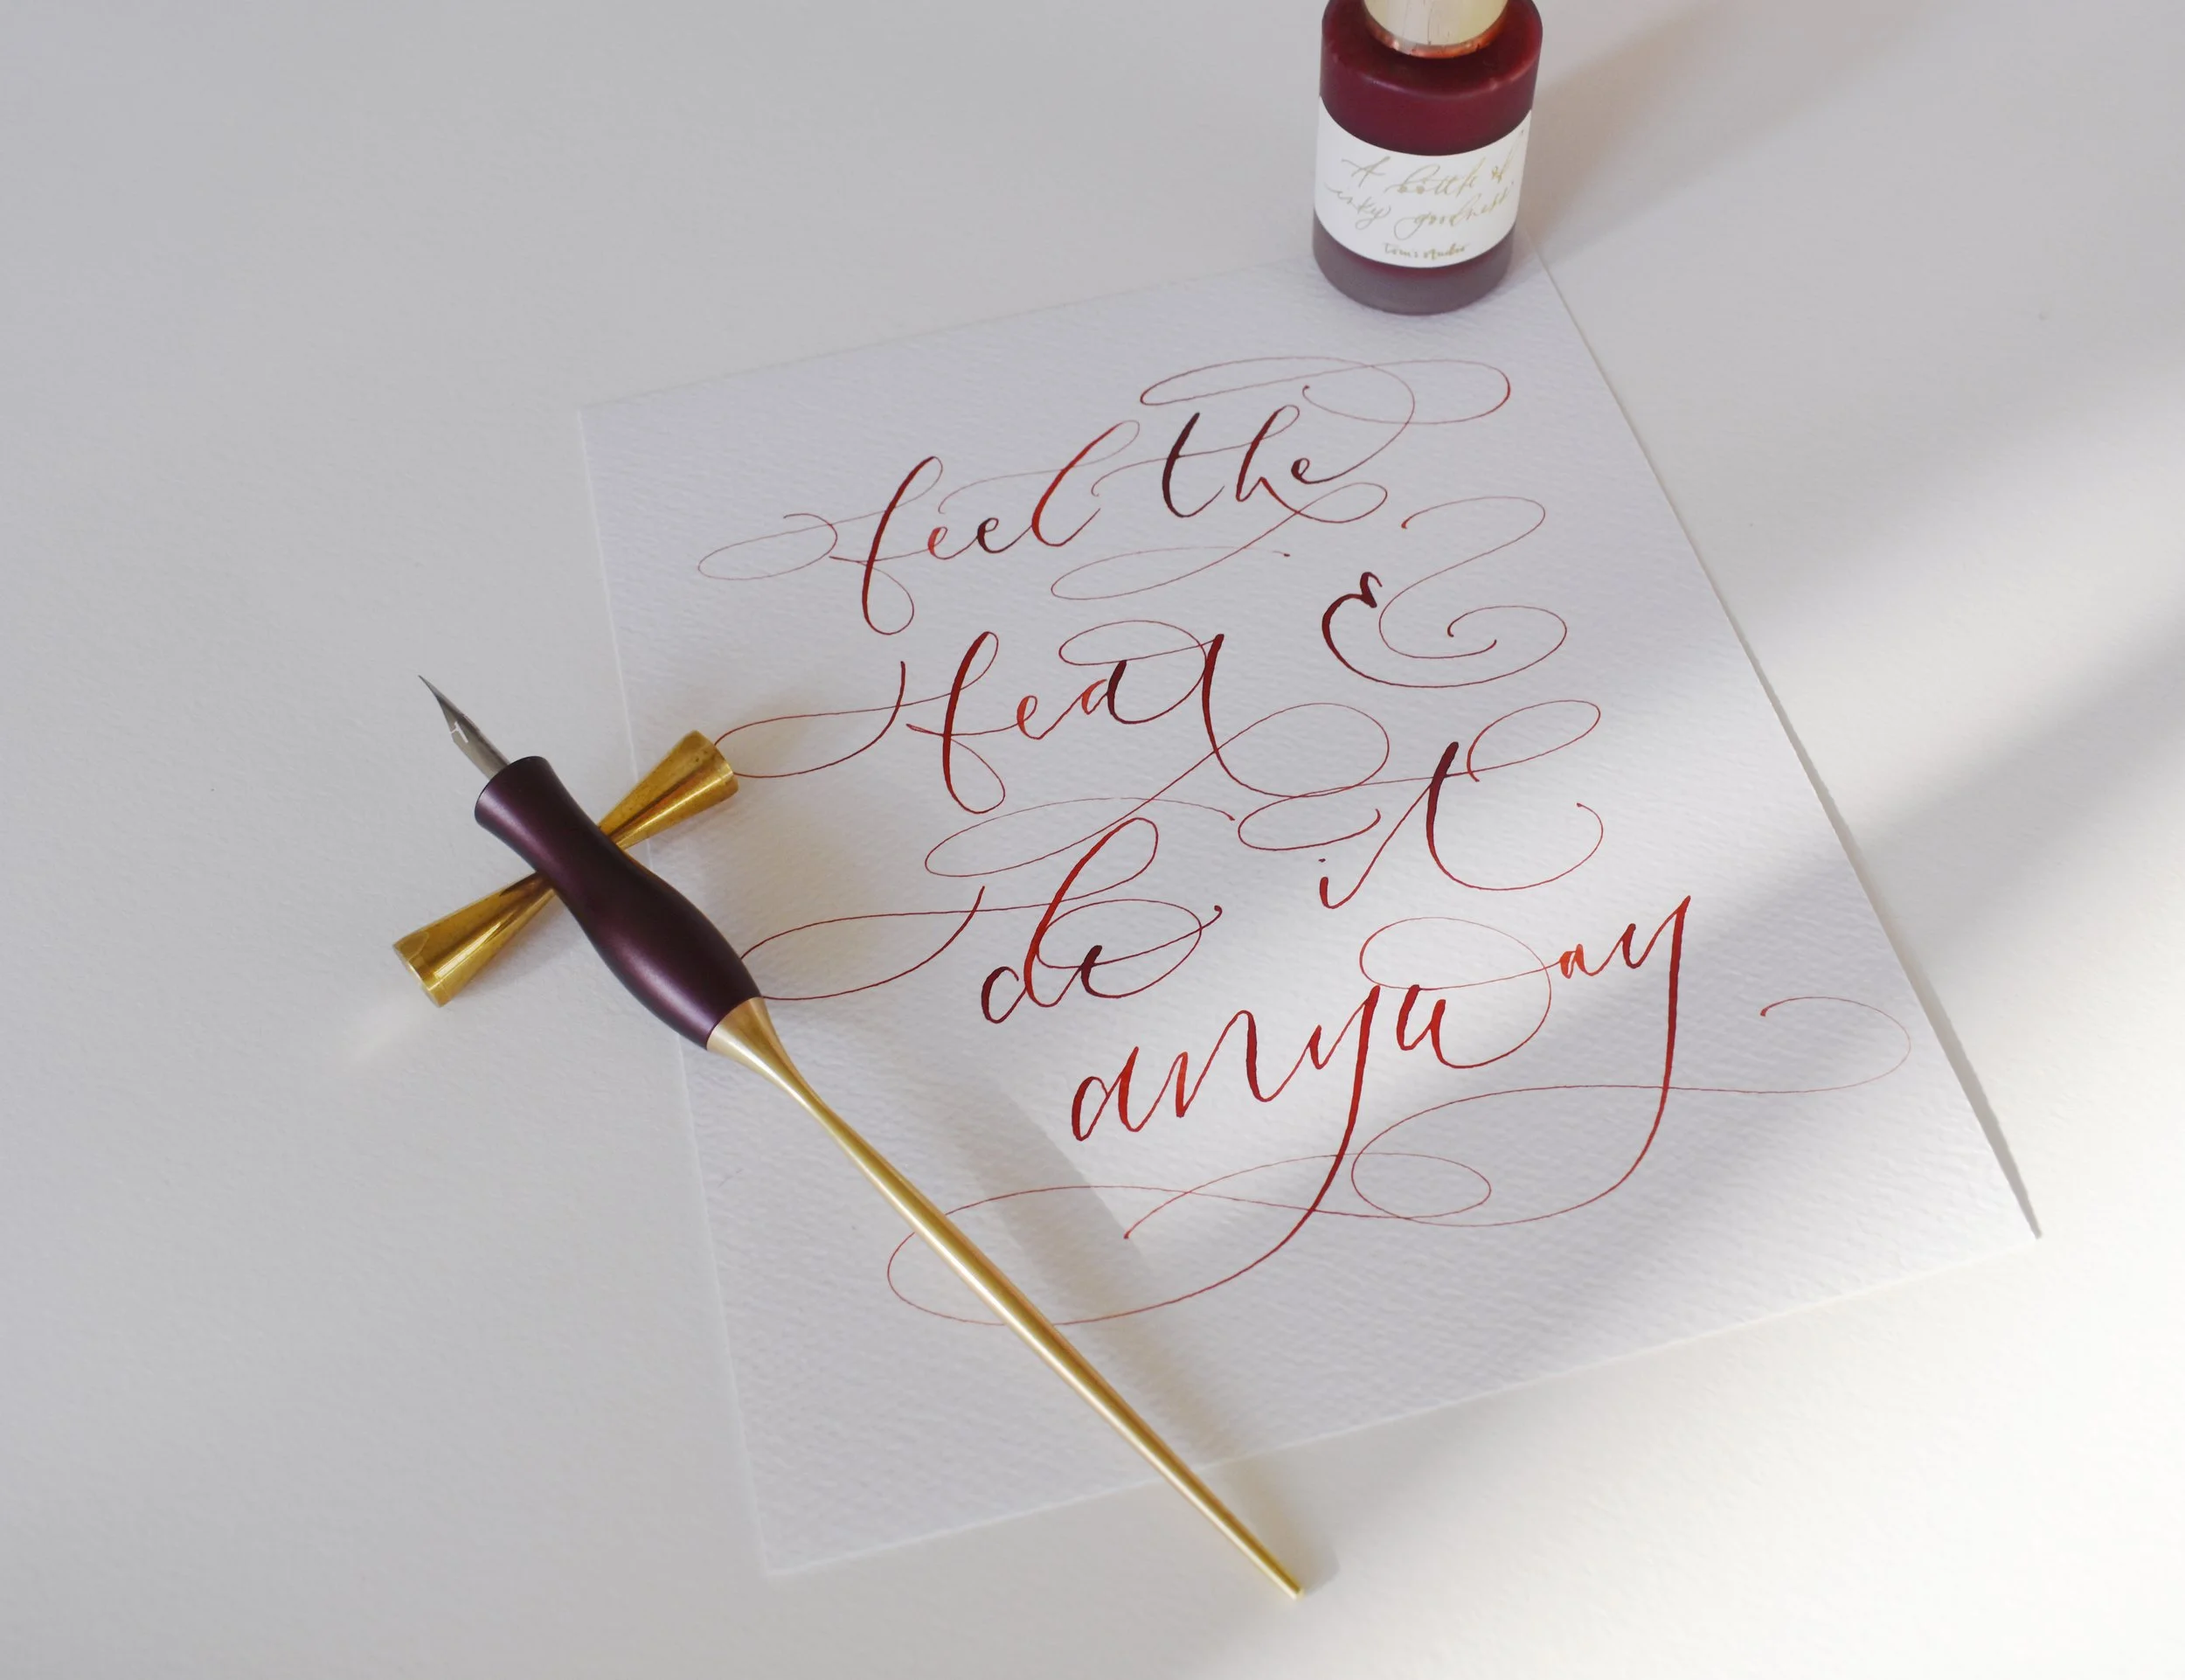 A bottle of
inky goodness
tom's studio
feel the
fear &
do it
anyway